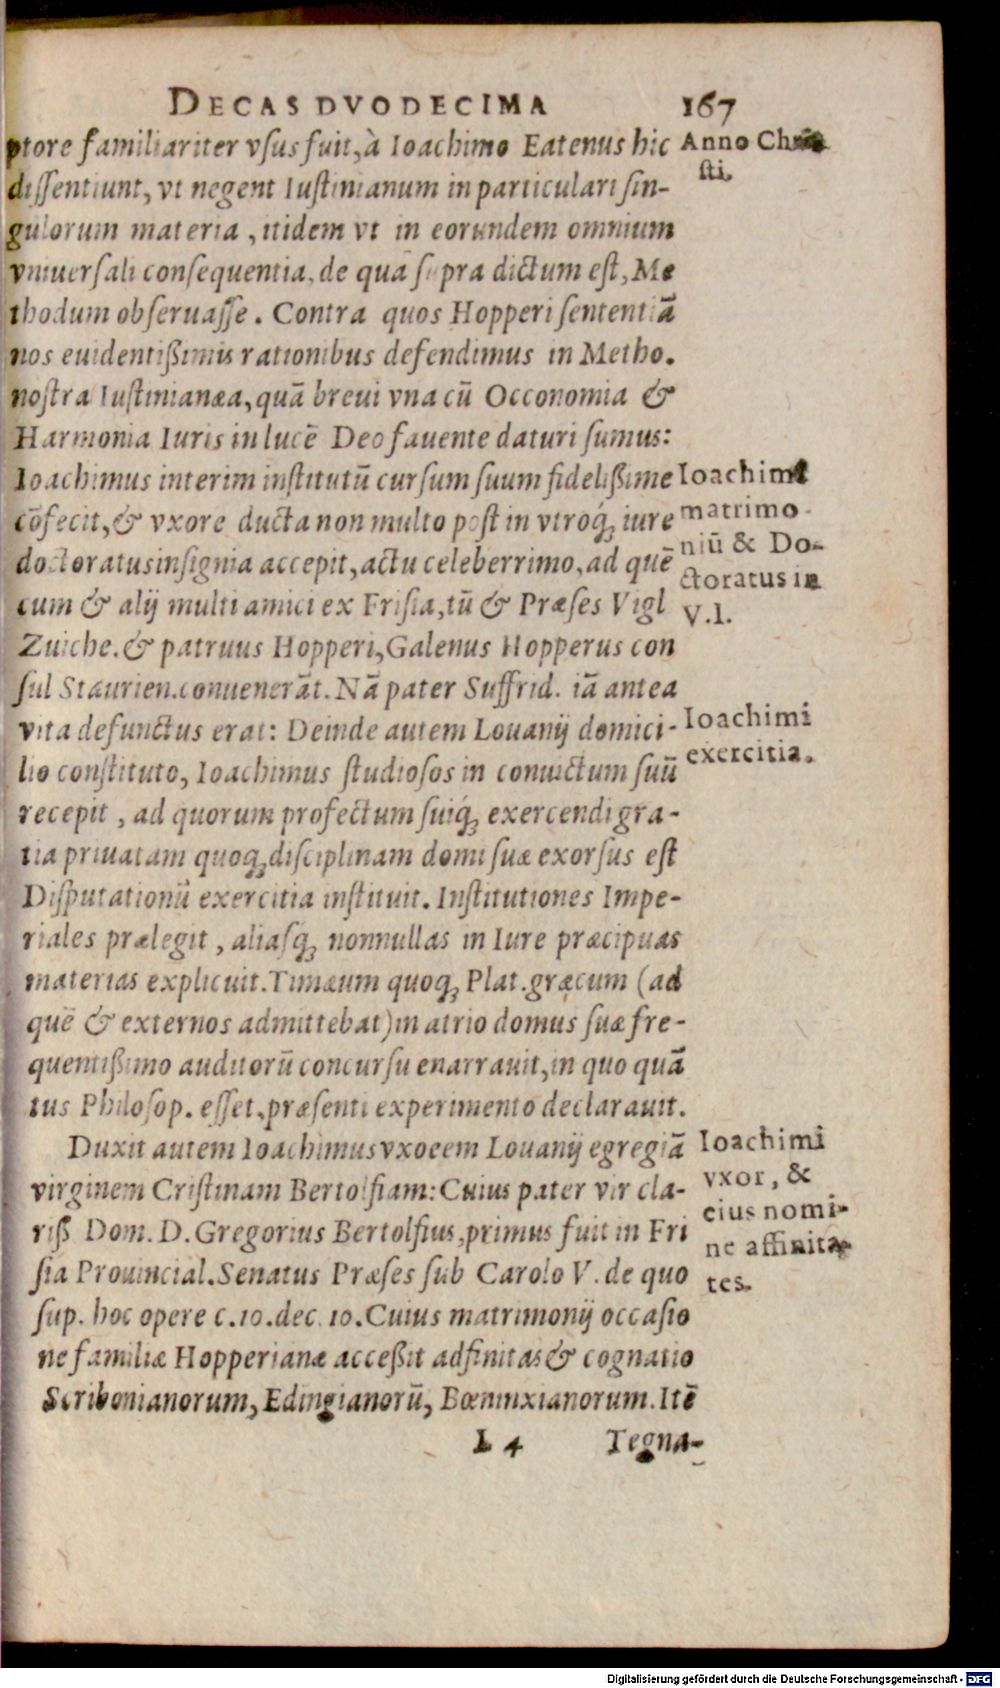 DECAS DVODECIMA 167
ptore familiariter vsus fuit, à Ioachimo Eatenus hic
dissentiunt, vt negent Iustinianum in particulari sin-
gulorum materia, itidem vt in eorundem omnium
vniuersali consequentia, de qua supra dictum est, Me
thodum obseruasse. Contra quos Hopperi sententiā
nos euidentißimis rationibus defendimus in Metho.
nostra Iustinianæa, quā breui vna cū Occonomia &
Harmonia Iuris in lucē Deo fauente daturi sumus:
Ioachimus interim institutū cursum suum fidelißime
cōfecit, & vxore ducta non multo post in vtroq́; iure
doctoratus insignia accepit, actu celeberrimo, ad quē
cum & alij multi amici ex Frisia, tū & Præses Vigl
Zuiche. & patruus Hopperi, Galenus Hopperus con
sul Staurien. conuenerāt. Nā pater Suffrid. iā antea
vita defunctus erat: Deinde autem Louanij domici-
lio constituto, Ioachimus studiosos in conuictum suū
recepit, ad quorum profectum suiq́; exercendi gra-
tia priuatam quoq; disciplinam domi suæ exorsus est
Disputationū exercitia instituit. Institutiones Impe-
riales prælegit, aliasq́; nonnullas in Iure præcipuas
materias explicuit. Timæum quoq; Plat. græcum (ad
quē & externos admittebat) in atrio domus suæ fre-
quentißimo auditorū concursu enarrauit, in quo quā
tus Philosop. esset, præsenti experimento declarauit.
Duxit autem Ioachimus vxoeem Louanij egregiā
virginem Cristinam Bertolfiam: Cuius pater vir cla-
riß Dom. D. Gregorius Bertolfius, primus fuit in Fri
sia Prouincial. Senatus Præses sub Carolo V. de quo
sup. hoc opere c. 10. dec. 10. Cuius matrimonij occasio
ne familiæ Hopperianæ acceßit adfinitas & cognatio
Scribonianorum, Edingianorū, Bœninxianorum. Itē
L 4 Tegna-
Anno Chri
sti.
Ioachimi
matrimo-
niū & Do-
ctoratus in
V.I.
Ioachimi
exercitia.
Ioachimi
vxor, &
eius nomi-
ne affinita-
tes.
Digitalisierung gefördert durch die Deutsche Forschungsgemeinschaft - DFG